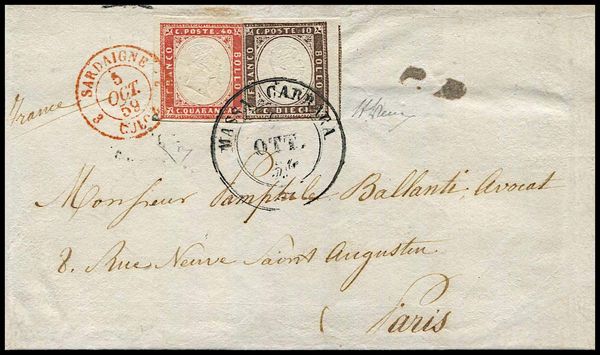 C. POSTE. 40
FRANCO
BOLLO
C. QUARANTA
C. POSTE. 10
FRANCO
BOLLO
C. DIECI
SARDAIGNE
5
OCT.
59
3 CULOZ
MASSA CARRARA
OTT.
France
Monsieur Pamphile Ballanti Avocat
8. Rue Neuve Saint Augustin
Paris